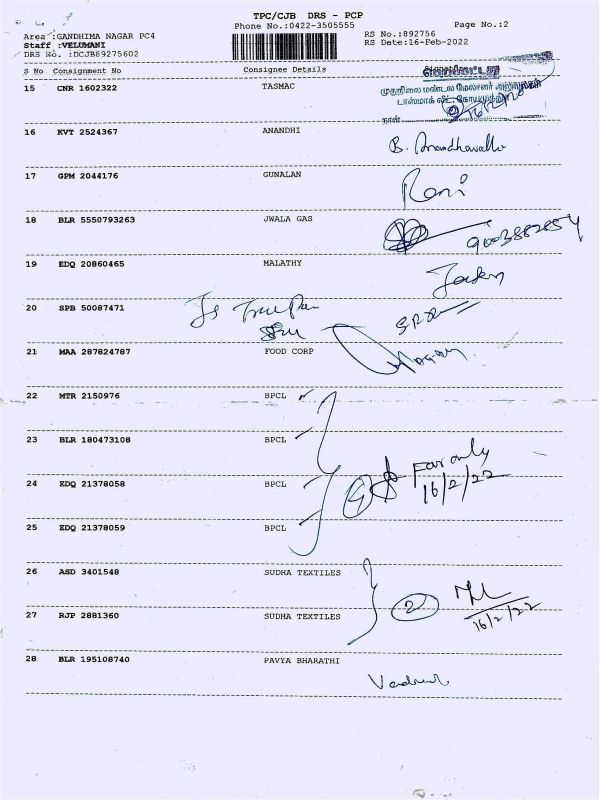 TPC/CJB DRS - PCP
Phone No.:0422-3505555
Page No.:2
Area :GANDHIMA NAGAR PC4
RS No.:892756
Staff :VELUMANI
RS Date:16-Feb-2022
DRS No. :DCJB89275602
S No Consignment No Consignee Details
15 CNR 1602322 TASMAC
முதுநிலை மண்டல மேலாளர் அலுவலகம்
டாஸ்மாக் லிட்., கோயமுத்தூர்
நாள்
16 KVT 2524367 ANANDHI
B. Anandhavalli
17 GPM 2044176 GUNALAN
Rani
18 BLR 5550793263 JWALA GAS
9003882854
19 EDQ 20860465 MALATHY
20 SPB 50087471
21 MAA 287824787 FOOD CORP
22 MTR 2150976 BPCL
23 BLR 180473108 BPCL
For only
24 EDQ 21378058 BPCL
4
16/2/22
25 EDQ 21378059 BPCL
26 ASD 3401548 SUDHA TEXTILES
2
27 RJP 2881360 SUDHA TEXTILES
16/2/22
28 BLR 195108740 PAVYA BHARATHI